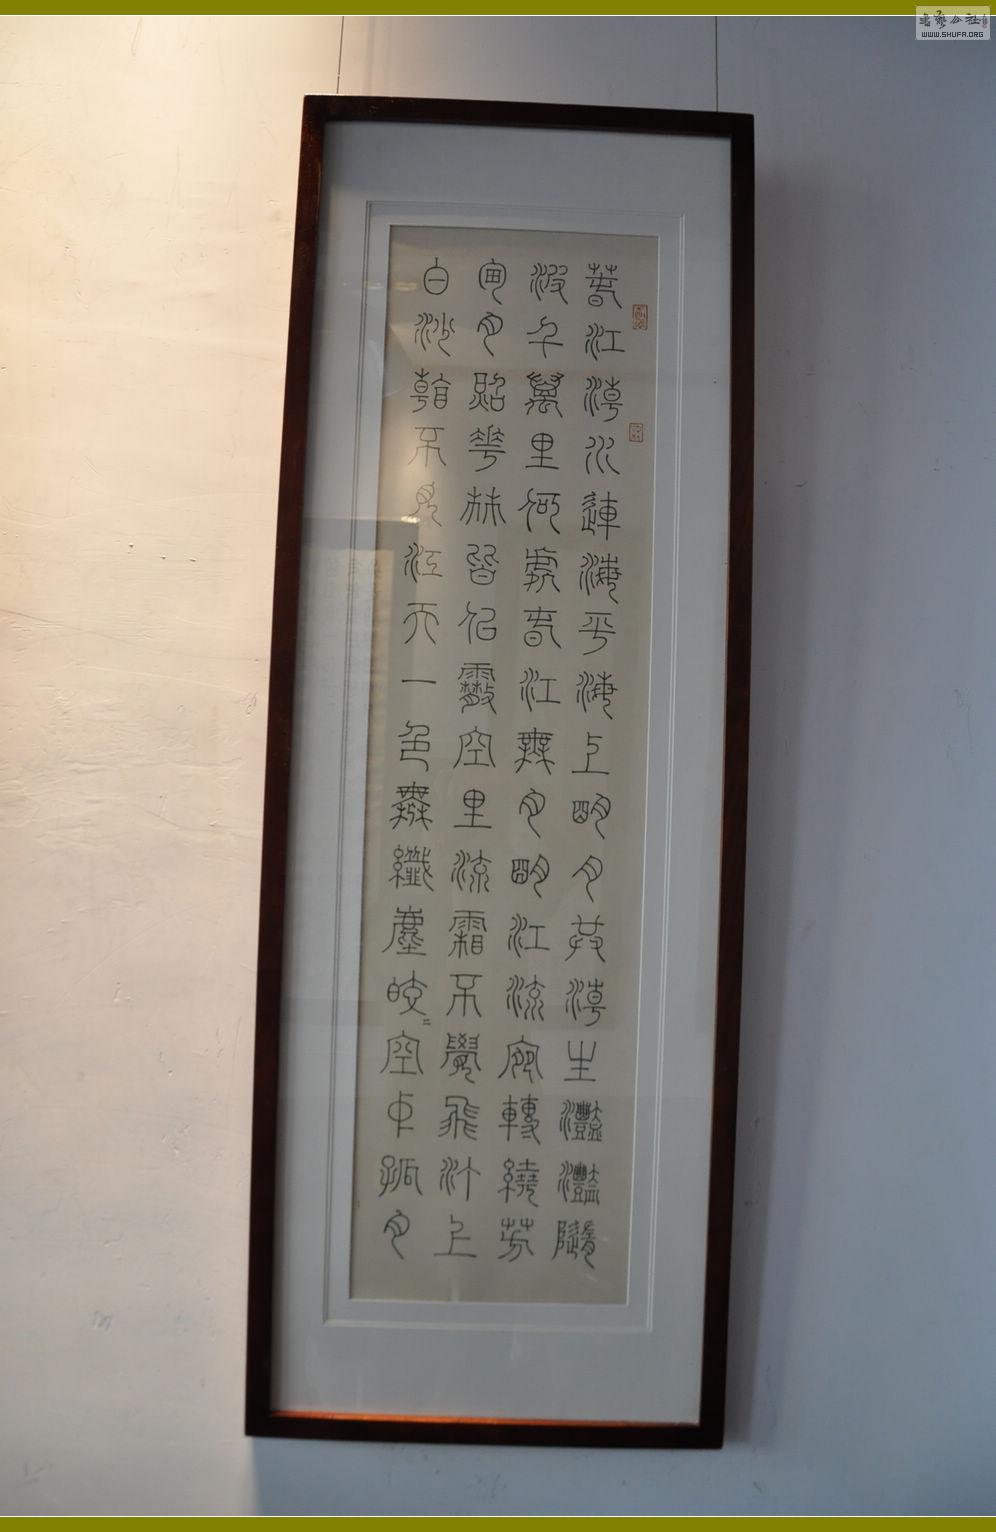 春江潮水連海平海上明月共潮生灩灩隨
波千萬里何處春江無月明江流宛轉繞芳
甸月照花林皆似霰空里流霜不覺飛汀上
白沙看不見江天一色無纖塵皎=空中孤月
WWW.SHUFA.ORG